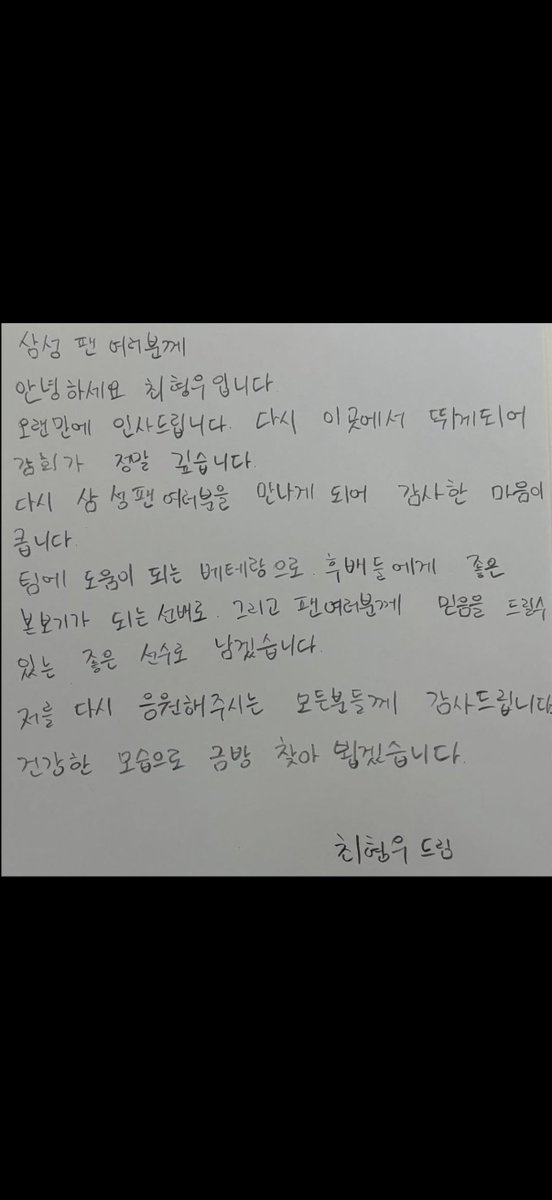 삼성 팬 여러분께
안녕하세요 최형우입니다
오랜만에 인사드립니다. 다시 이곳에서 뛰게되어
감회가 정말 깊습니다.
다시 삼성팬 여러분을 만나게 되어 감사한 마음이
큽니다.
팀에 도움이 되는 베테랑으로. 후배들에게 좋은
본보기가 되는 선배로. 그리고 팬여러분께 믿음을 드릴수
있는 좋은 선수로 남겠습니다.
저를 다시 응원해주시는 모든분들께 감사드립니다
건강한 모습으로 금방 찾아 뵙겠습니다.
최형우 드림